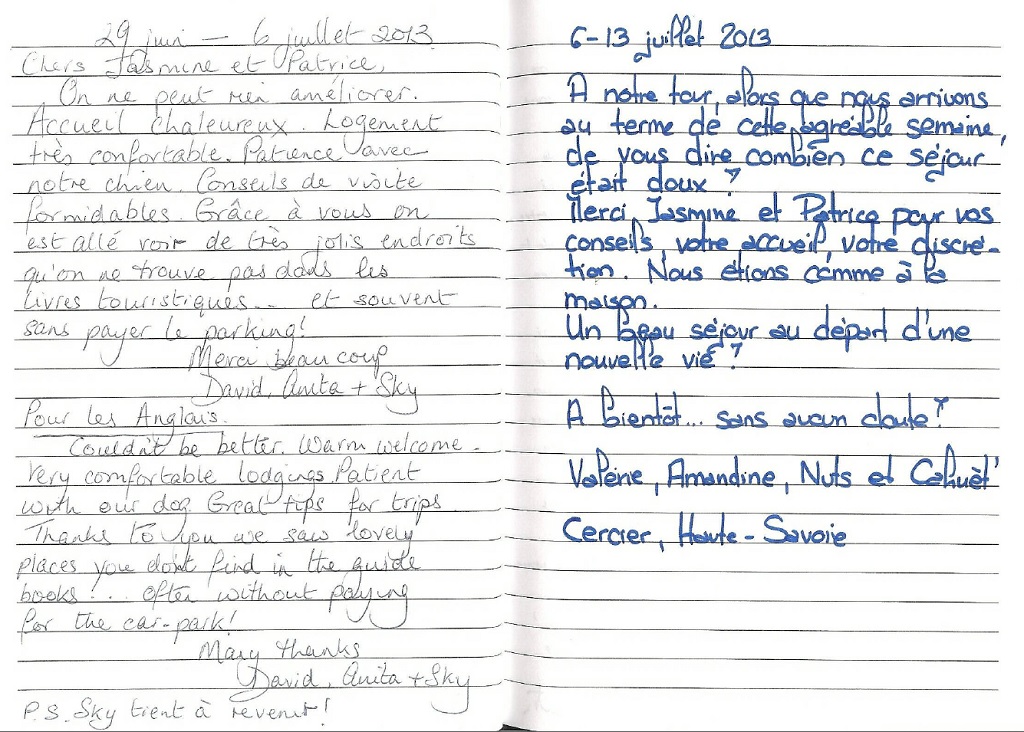 29 juin — 6 juillet 2013
Chers Jasmine et Patrice,
On ne peut rien améliorer.
Accueil chaleureux. Logement
très confortable. Patience avec
notre chien. Conseils de visite
formidables. Grâce à vous on
est allé voir de très jolis endroits
qu'on ne trouve pas dans les
livres touristiques... et souvent
sans payer le parking!
Merci beaucoup
David, Anita + Sky
Pour les Anglais.
Couldn't be better. Warm welcome.
Very comfortable lodgings. Patient
with our dog. Great tips for trips.
Thanks to you we saw lovely
places you don't find in the guide
books!... often without paying
for the car-park!
Many thanks
David, Anita + Sky
P.S. Sky tient à revenir!
6-13 juillet 2013
A notre tour, alors que nous arrivons
au terme de cette agréable semaine,
de vous dire combien ce séjour
était doux !
Merci Jasmine et Patrice pour vos
conseils, votre accueil, votre discré-
tion. Nous étions comme à la
maison.
Un beau séjour au départ d'une
nouvelle vie !
A bientôt... sans aucun doute !
Valérie, Amandine, Nuts et
Cercier, Haute-Savoie